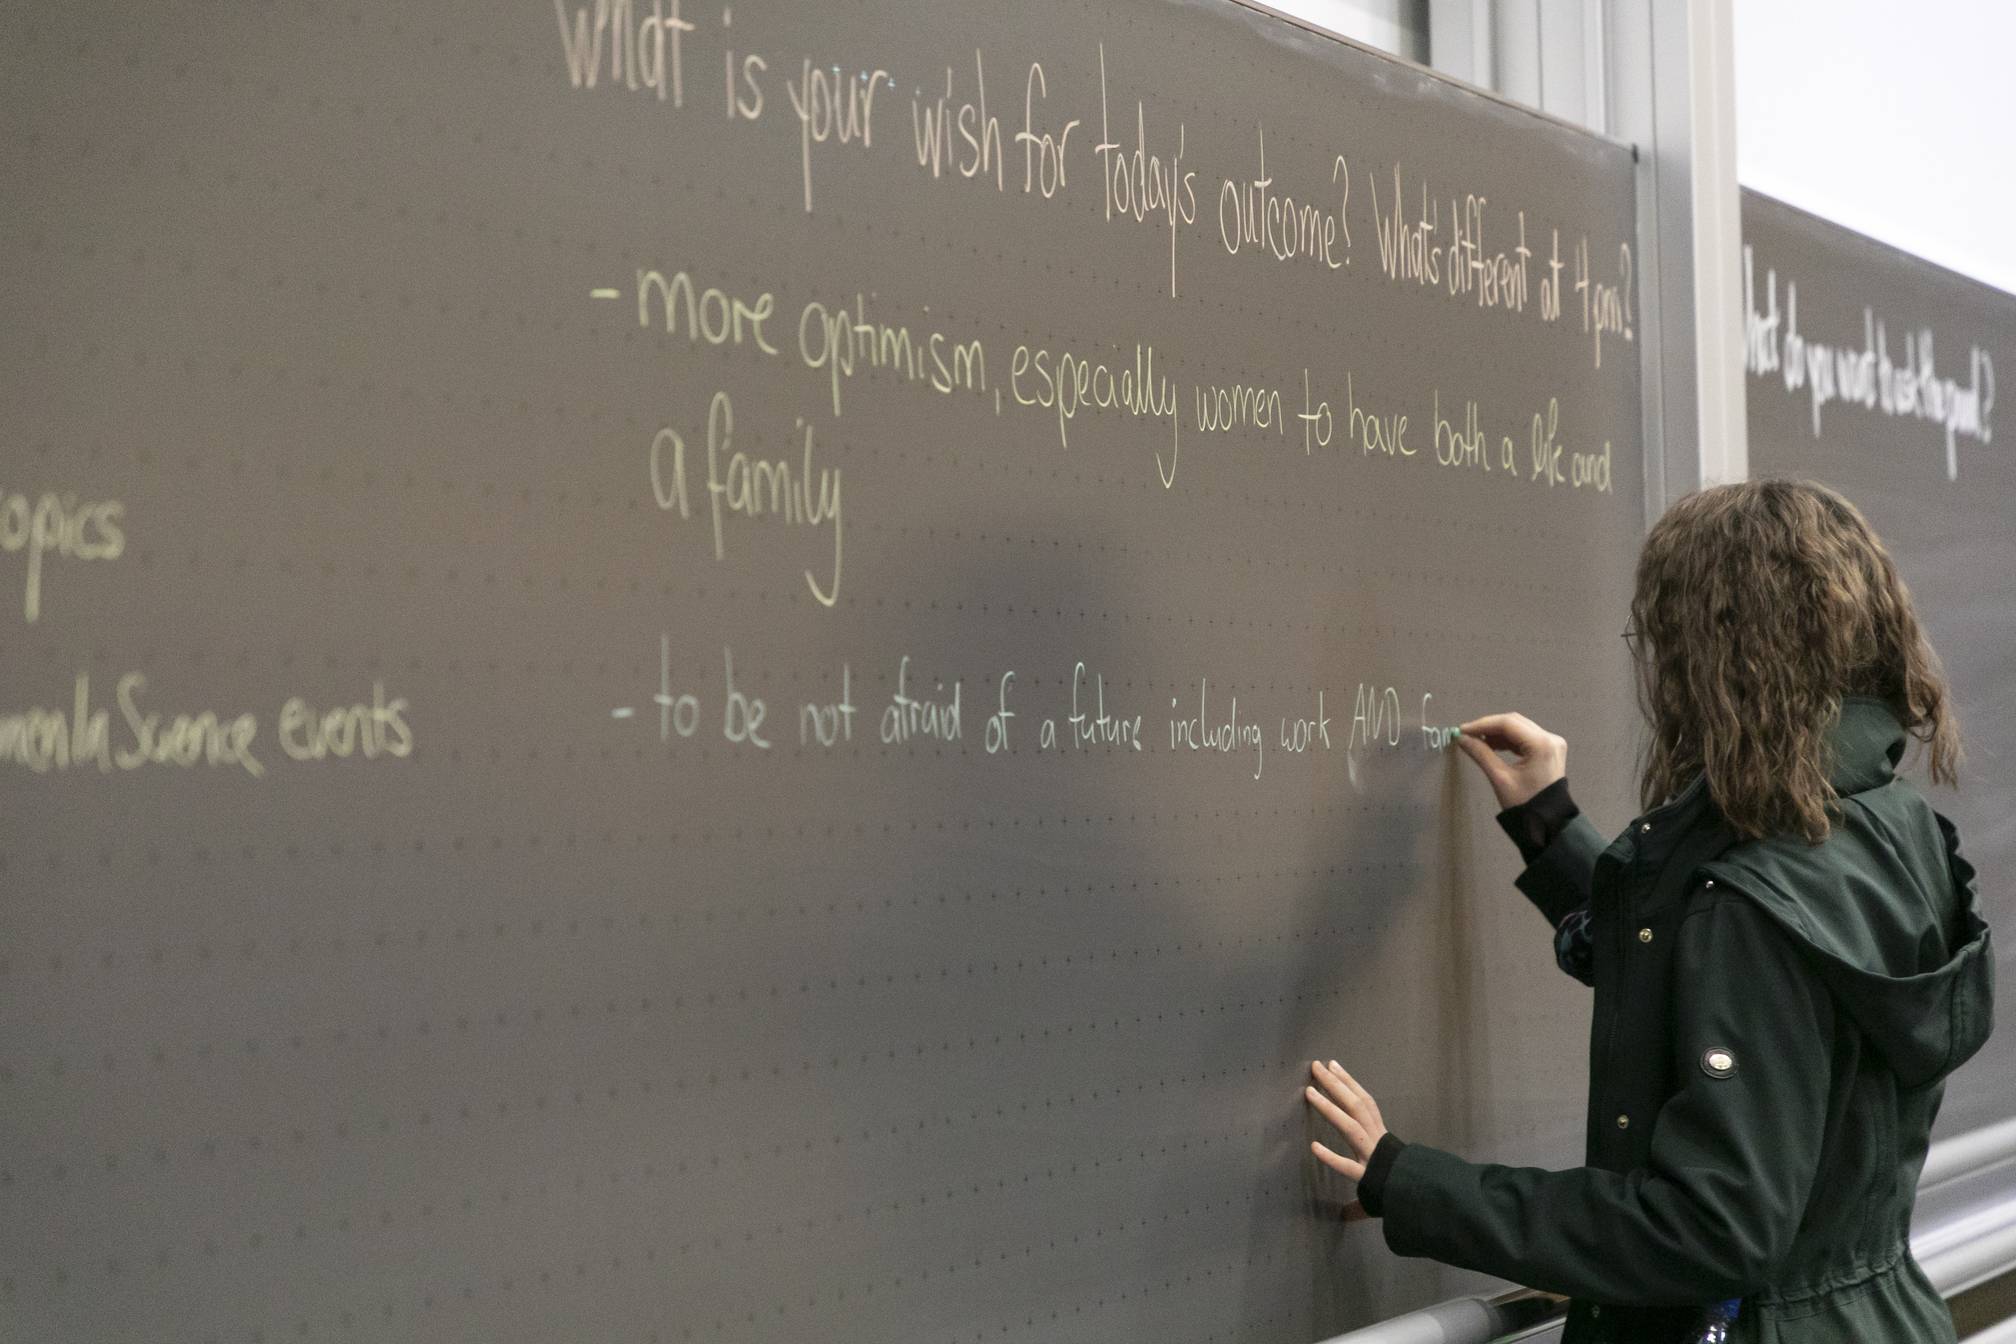 What is your wish for today's outcome? What's different at 4 pm?
- more optimism, especially women to have both a life and
a family
- to be not afraid of a future including work AND fam
opics
men In Science events
What do you want to ask the panel?